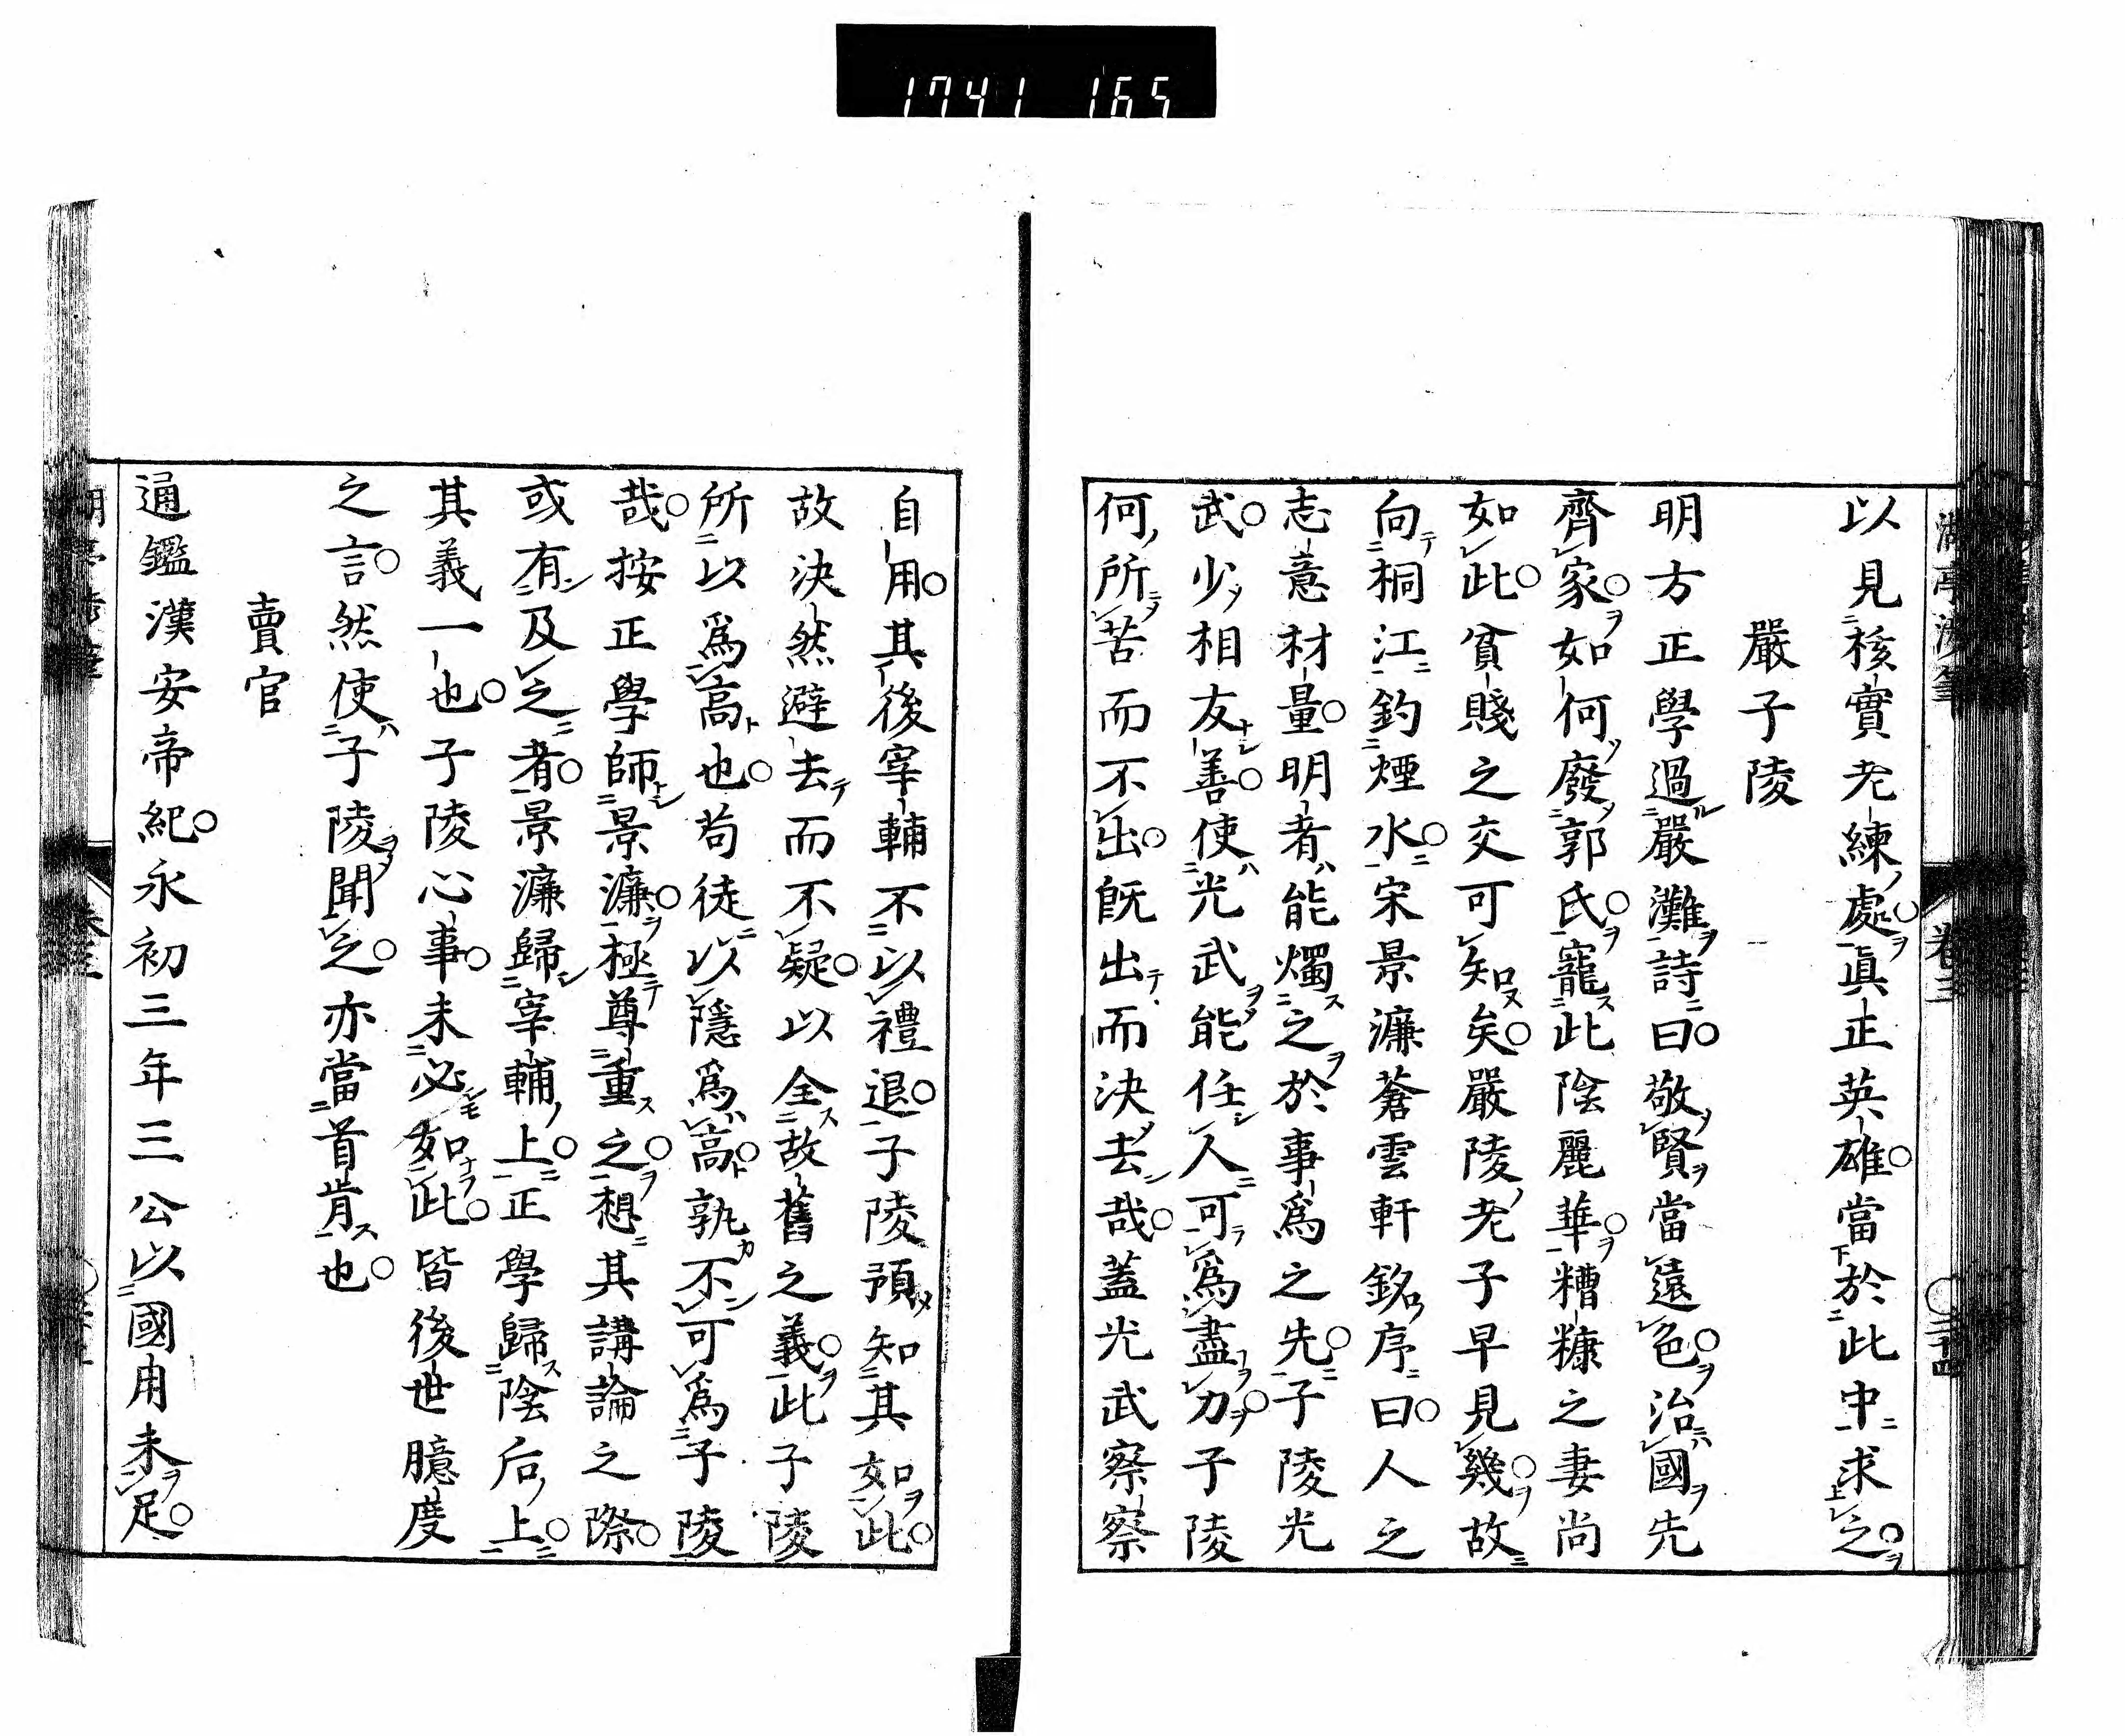 1741 165
以見核實老練處真正英雄當於此中求之
嚴子陵
明方正學過嚴灘詩曰敬賢當遠色治國先
齊家如何廢郭氏寵此陰麗華糟糠之妻尚
如此貧賤之交可知矣嚴陵老子早見幾故
向桐江釣煙水宋景濂蒼雲軒銘序曰人之
志意材量明者能燭之於事爲之先子陵光
武少相友善使光武能任人可爲盡力子陵
何所苦而不出旣出而決去哉蓋光武察察
自用其後宰輔不以禮退子陵預知其如此
故決然避去而不疑以全故舊之義此子陵
所以爲高也苟徒以隱爲高孰不可爲子陵
哉按正學師景濂極尊重之想其講論之際
或有及之者景濂歸宰輔上正學歸陰后上
其義一也子陵心事未必如此皆後世臆度
之言然使子陵聞之亦當首肯也
賣官
通鑑漢安帝紀永初三年三公以國用未足